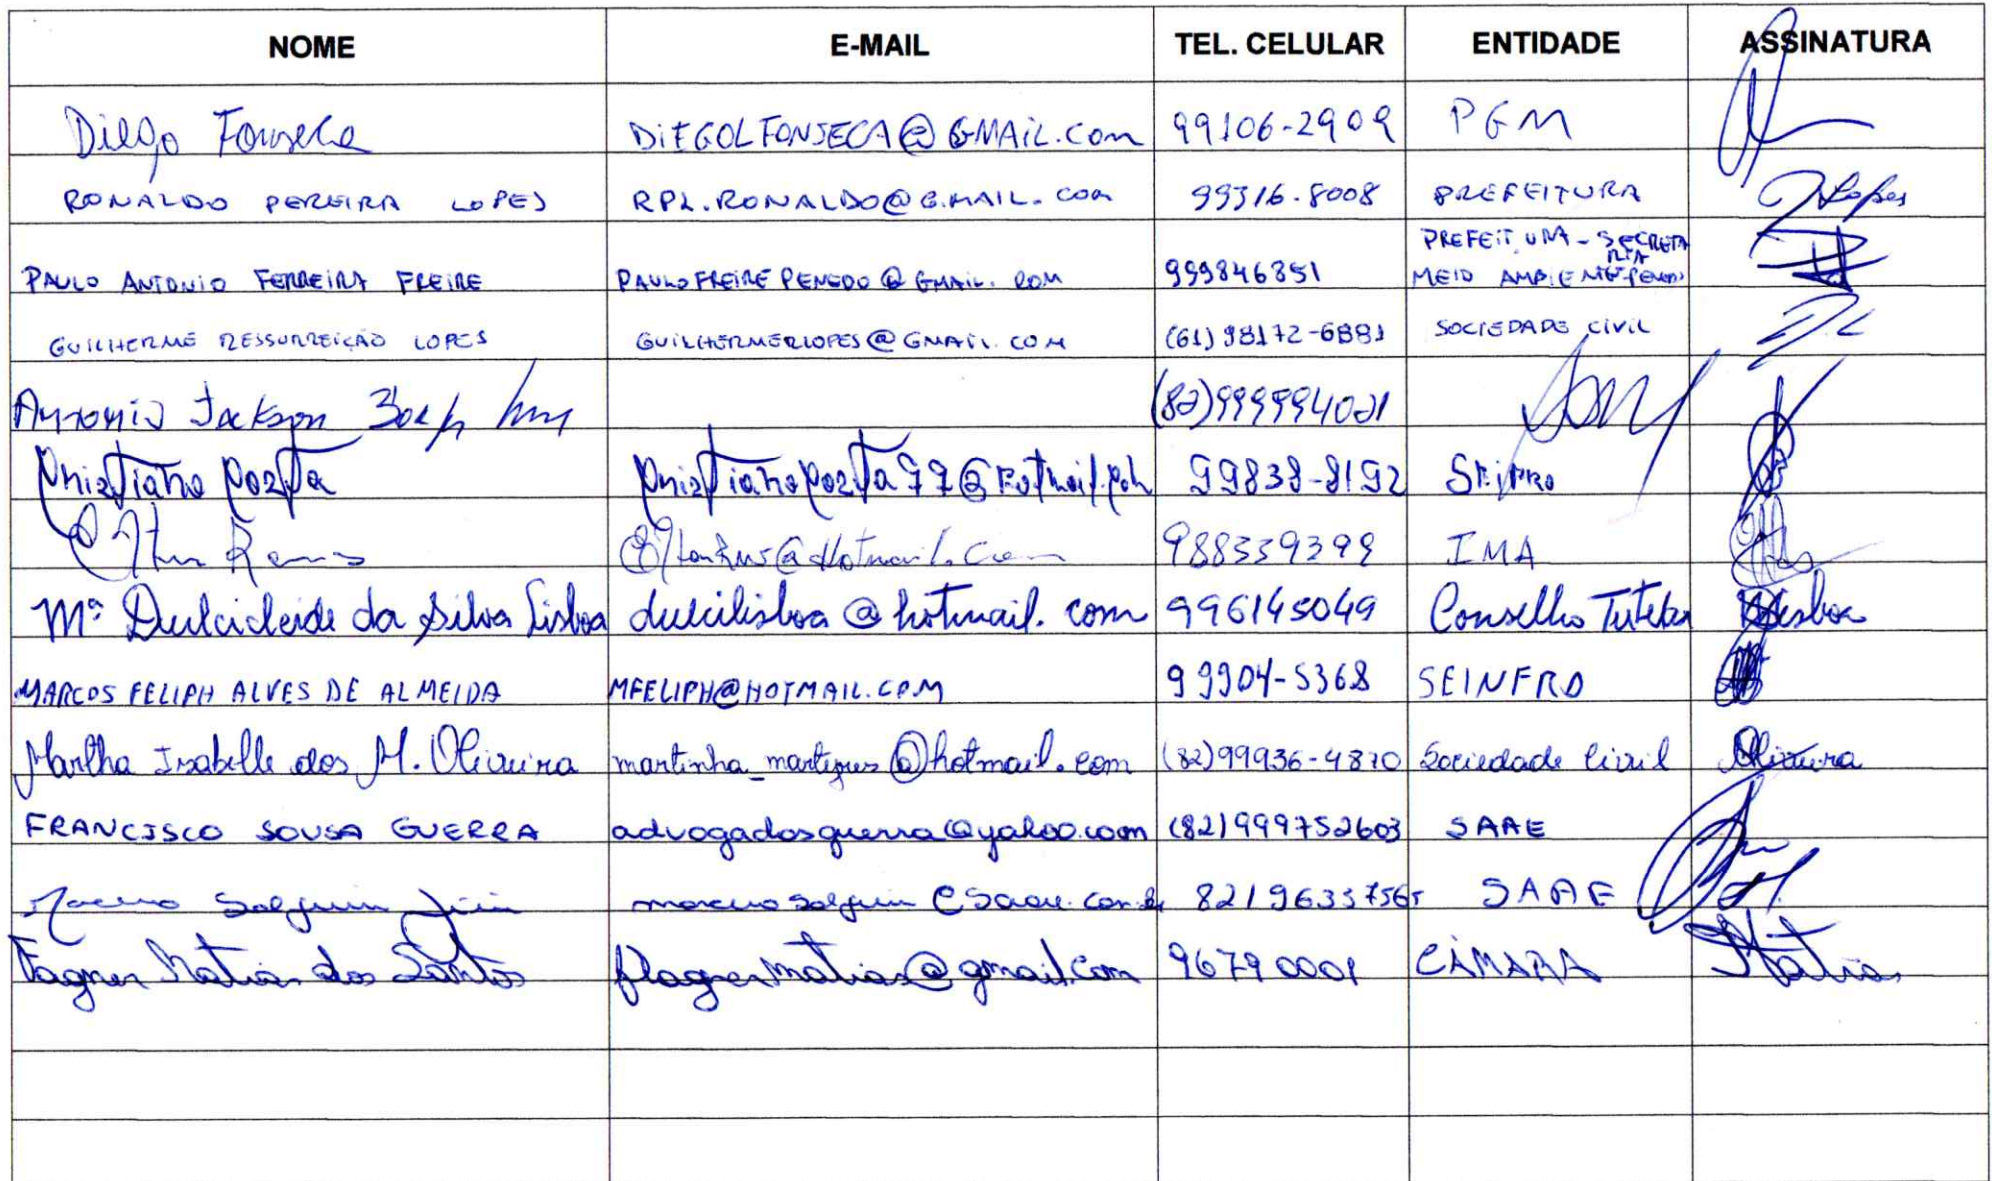 NOME E-MAIL TEL. CELULAR ENTIDADE ASSINATURA
Diego Fonseca DiEGOLFONSECA@GMAiL.Com 99106-2909 PGM
RONALDO PEREIRA LOPES RPL.RONALDO@GMAIL.COM 99316-8008 PREFEITURA Lopes
PAULO ANTONIO FERREIRA FREIRE PAULOFREIREPENEDO@GMAIL.COM 999846351 PREFEITURA - SECRETARIA
MEIO AMBIENTE-PENEDO
GUILHERME RESSURREIÇÃO LOPES GUILHERMERLOPES@GMAIL.COM (61)98172-6881 SOCIEDADE CIVIL
Antonio Jackson (82)999994021
Christiano Costa 99838-8192
Ramos 988339399 IMA
Mª Dulcicleide da Silva Lisboa dulcilisboa@hotmail.com 996145049 Conselho Tutelar Lisboa
MARCOS FELIPH ALVES DE ALMEIDA MFELIPH@HOTMAIL.COM 99904-5368 SEINFRO
Martha Izabelle dos M. Oliveira martinha_martires@hotmail.com (82)99936-4870 Sociedade Civil Oliveira
FRANCISCO SOUSA GUERRA advogadosguerra@yahoo.com (82)999752603 SAAE
SAAE
Fagner Matias dos Santos flagnermatias@gmail.com 96790001 CÂMARA Matias